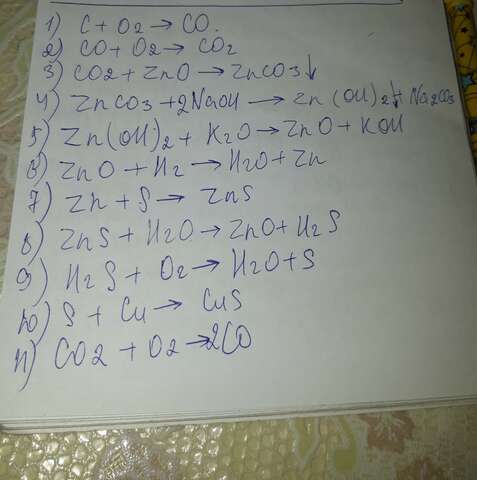 1) C + O2 → CO.
2) CO + O2 → CO2
3) CO2 + ZnO → ZnCO3↓
4) ZnCO3 + 2NaOH → Zn(OH)2↓ + Na2CO3
5) Zn(OH)2 + K2O → ZnO + KOH
6) ZnO + H2 → H2O + Zn
7) Zn + S → ZnS
8) ZnS + H2O → ZnO + H2S
9) H2S + O2 → H2O + S
10) S + Cu → CuS
11) CO2 + O2 → 2CO